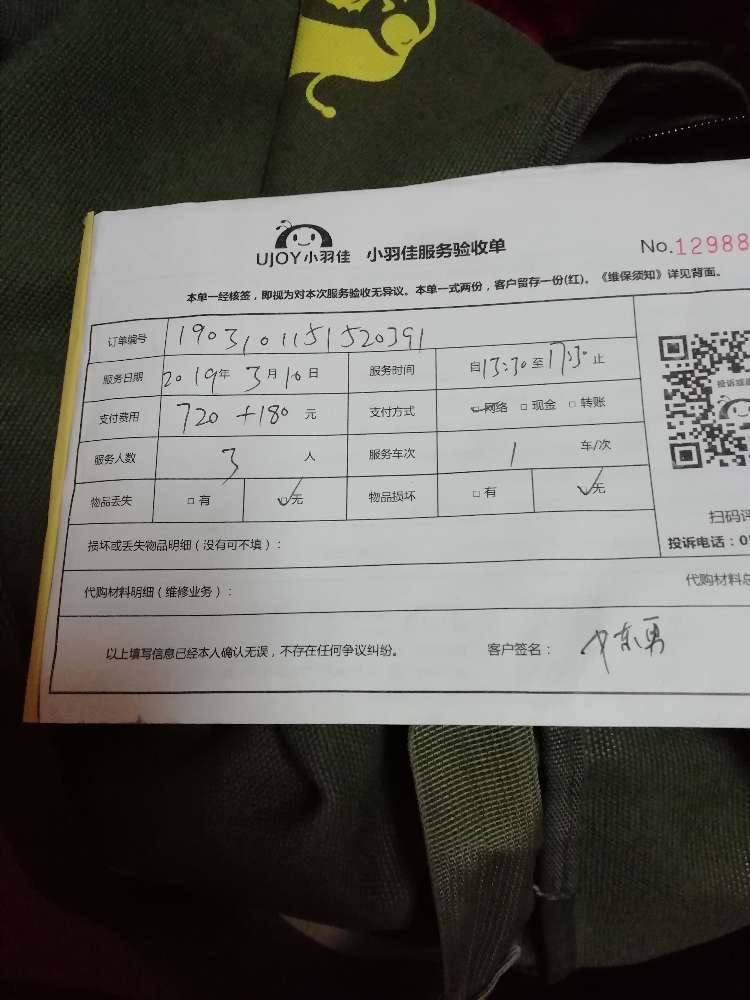 UJOY小羽佳 小羽佳服务验收单 No.12988
本单一经核签,即视为对本次服务验收无异议。本单一式两份,客户留存一份(红)。《维保须知》详见背面。
订单编号 1903101151520391
服务日期 2019年3月10日 服务时间 自13:30至17:30止
支付费用 720+180元 支付方式 □网络 □现金 □转账
服务人数 3人 服务车次 1 车/次
物品丢失 □有 ☑无 物品损坏 □有 ☑无
投诉或
扫码评
损坏或丢失物品明细(没有可不填): 投诉电话:0
代购材料明细(维修业务): 代购材料总
以上填写信息已经本人确认无误,不存在任何争议纠纷。 客户签名: 东勇